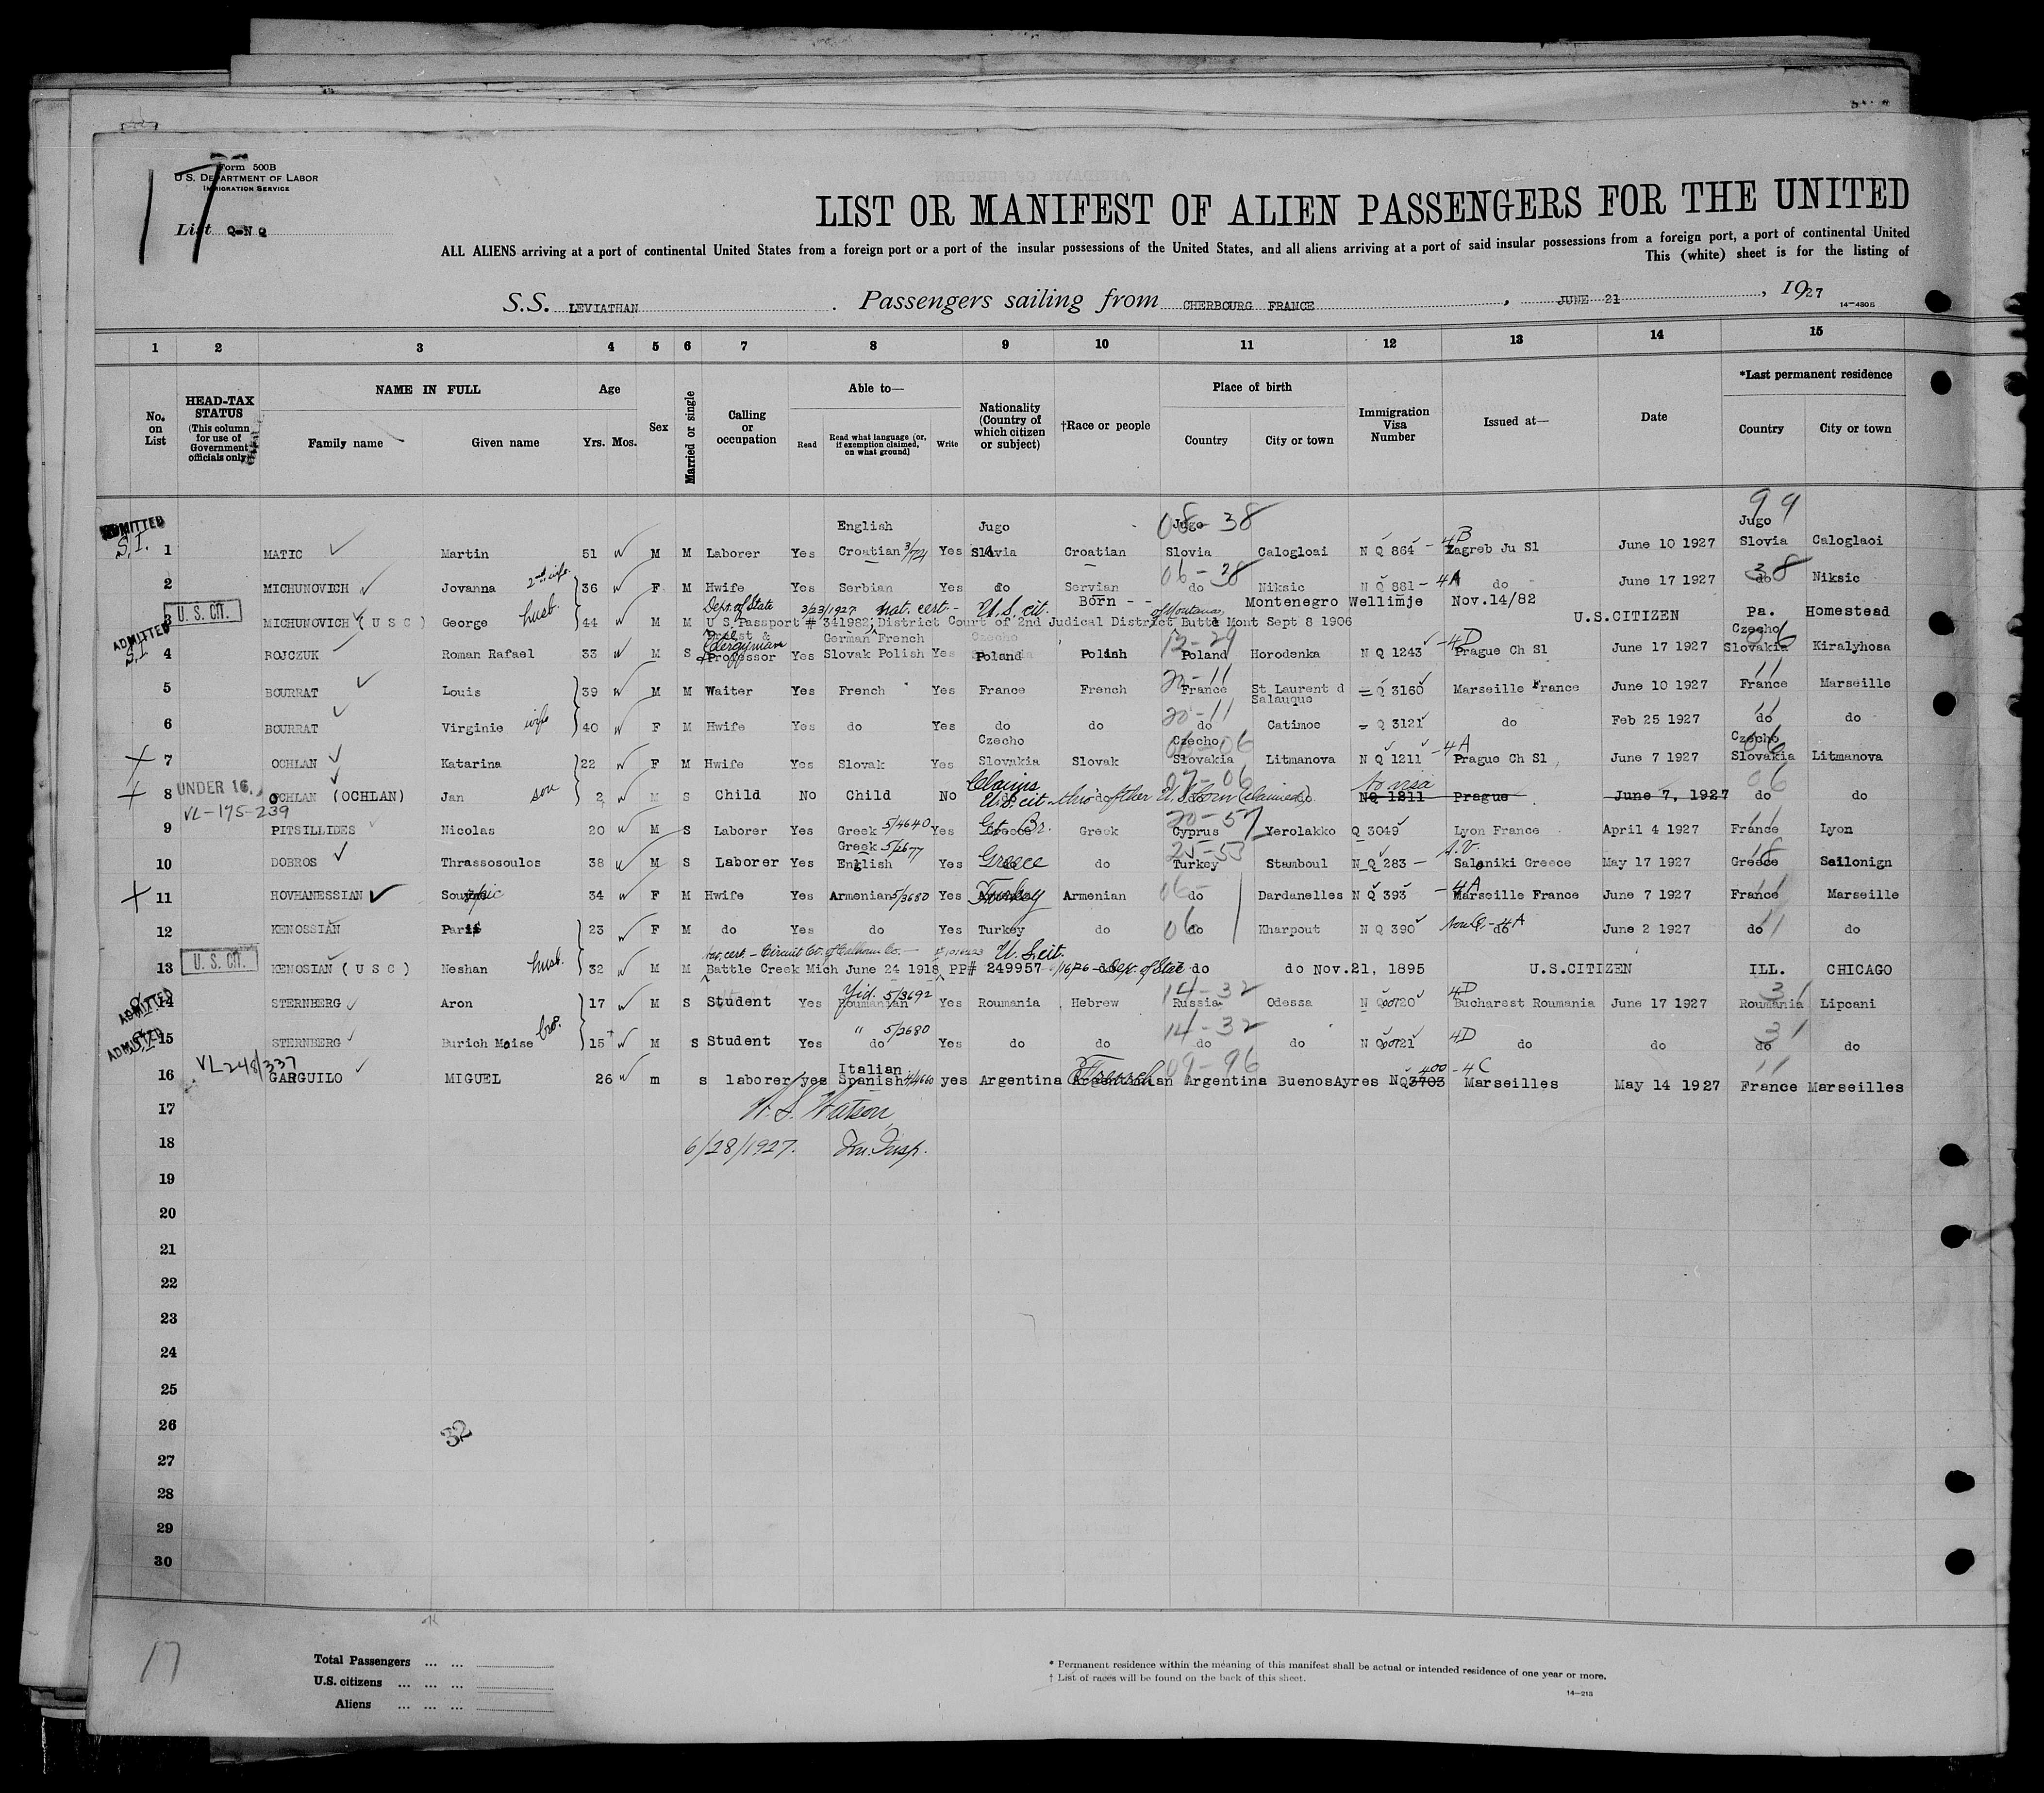 17
Form 500B
U.S. DEPARTMENT OF LABOR
IMMIGRATION SERVICE
List Q-N Q
LIST OR MANIFEST OF ALIEN PASSENGERS FOR THE UNITED
ALL ALIENS arriving at a port of continental United States from a foreign port or a port of the insular possessions of the United States, and all aliens arriving at a port of said insular possessions from a foreign port, a port of continental United
This (white) sheet is for the listing of
S.S. LEVIATHAN. Passengers sailing from CHERBOURG FRANCE, JUNE 21, 1927
14-480B
1 2 3 4 5 6 7 8 9 10 11 12 13 14 15
No. on List
HEAD-TAX STATUS (This column for use of Government officials only)
NAME IN FULL Family name Given name
Age Yrs. Mos.
Sex
Married or single
Calling or occupation
Able to— Read Read what language (or, if exemption claimed, on what ground) Write
Nationality (Country of which citizen or subject)
†Race or people
Place of birth Country City or town
Immigration Visa Number
Issued at—
Date
*Last permanent residence Country City or town
99
English Jugo Jugo 08-38 Jugo
ADMITTED S.I. 1 MATIC Martin 51 M M Laborer Yes Croatian Yes Slavia Croatian Slovia Calogloai N Q 864 - 4B Zagreb Ju Sl June 10 1927 Slovia Caloglaoi
2 MICHUNOVICH Jovanna 2nd wife 36 F M Hwife Yes Serbian Yes do Servian 06-38 do Niksic N Q 881 - 4A do June 17 1927 38 do Niksic
U.S. CIT. Dept. of State 3/23/1927 nat. cert. - U.S. cit. Born - - of Montana Montenegro Wellimje Nov.14/82
3 MICHUNOVICH (U S C) George husb. 44 M M U S Passport # 341982; District Court of 2nd Judical District Butte Mont Sept 8 1906 U.S.CITIZEN Pa. Homestead
Priest & Clergyman German French Czecho 12-29 Czecho 06
ADMITTED S.I 4 ROJCZUK Roman Rafael 33 M S Professor Yes Slovak Polish Yes Poland Polish Poland Horodenka N Q 1243 - 4D Prague Ch Sl June 17 1927 Slovakia Kiralyhosa
5 BOURRAT Louis 39 M M Waiter Yes French Yes France French 20-11 France St Laurent d Salauque Q 3160 Marseille France June 10 1927 11 France Marseille
6 BOURRAT Virginie wife 40 F M Hwife Yes do Yes do do 20-11 do Catimoc Q 3121 do Feb 25 1927 11 do do
Czecho Czecho 06-06 Czecho 06
7 OCHLAN Katarina 22 F M Hwife Yes Slovak Yes Slovakia Slovak Slovakia Litmanova N Q 1211 - 4A Prague Ch Sl June 7 1927 Slovakia Litmanova
UNDER 16. Claims 07-06 no visa 06
8 OCHLAN (OCHLAN) Jan son 2 M S Child No Child No U.S. cit. thru father U.S. born (claimed) NQ 1211 Prague June 7, 1927 do do
VL-175-239
9 PITSILLIDES Nicolas 20 M S Laborer Yes Greek 5/4640 Yes Gt. Br. Greek 20-57 Cyprus Yerolakko Q 3049 Lyon France April 4 1927 11 France Lyon
10 DOBROS Thrassosoulos 38 M S Laborer Yes Greek 5/2677 English Yes Greece do 25-53 Turkey Stamboul N Q 283 - S.V. Saloniki Greece May 17 1927 Greece Sailonign
11 HOVHANESSIAN Sourpic 34 F M Hwife Yes Armenian 5/3680 Yes Turkey Armenian 06- do Dardanelles N Q 393 - 4A Marseille France June 7 1927 11 France Marseille
12 KENOSSIAN Paris 23 F M do Yes do Yes Turkey do 06 do Kharpout N Q 390 Non Q-4A do June 2 1927 11 do do
U.S. CIT. nat. cert. - Circuit Ct. of Calhoun Co. - U.S. cit.
13 KENOSIAN (U S C) Neshan husb. 32 M M Battle Creek Mich June 24 1918 PP# 249957 Dept. of State do do Nov.21, 1895 U.S.CITIZEN ILL. CHICAGO
ADMITTED 14 STERNBERG Aron 17 M S Student Yes Yid. 5/3692 Roumanian Yes Roumania Hebrew 14-32 Russia Odessa N Q 00720 4D Bucharest Roumania June 17 1927 31 Roumania Lipcani
ADMITTED S.I. 15 STERNBERG Burich Moise bro. 15 M S Student Yes " 5/2680 do Yes do do 14-32 do do N Q 00721 4D do do 31 do do
VL248/337
16 GARGUILO MIGUEL 26 m s laborer yes Italian Spanish yes Argentina French 09-96 Argentina BuenosAyres NQ 3703 400 - 4C Marseilles May 14 1927 11 France Marseilles
17 W. S. Watson,
18 6/28/1927. Im. Insp.
19
20
21
22
23
24
25
26 32
27
28
29
30
17
Total Passengers ... ...
U.S. citizens ... ... ...
Aliens ... ... ...
* Permanent residence within the meaning of this manifest shall be actual or intended residence of one year or more.
† List of races will be found on the back of this sheet.
14-213